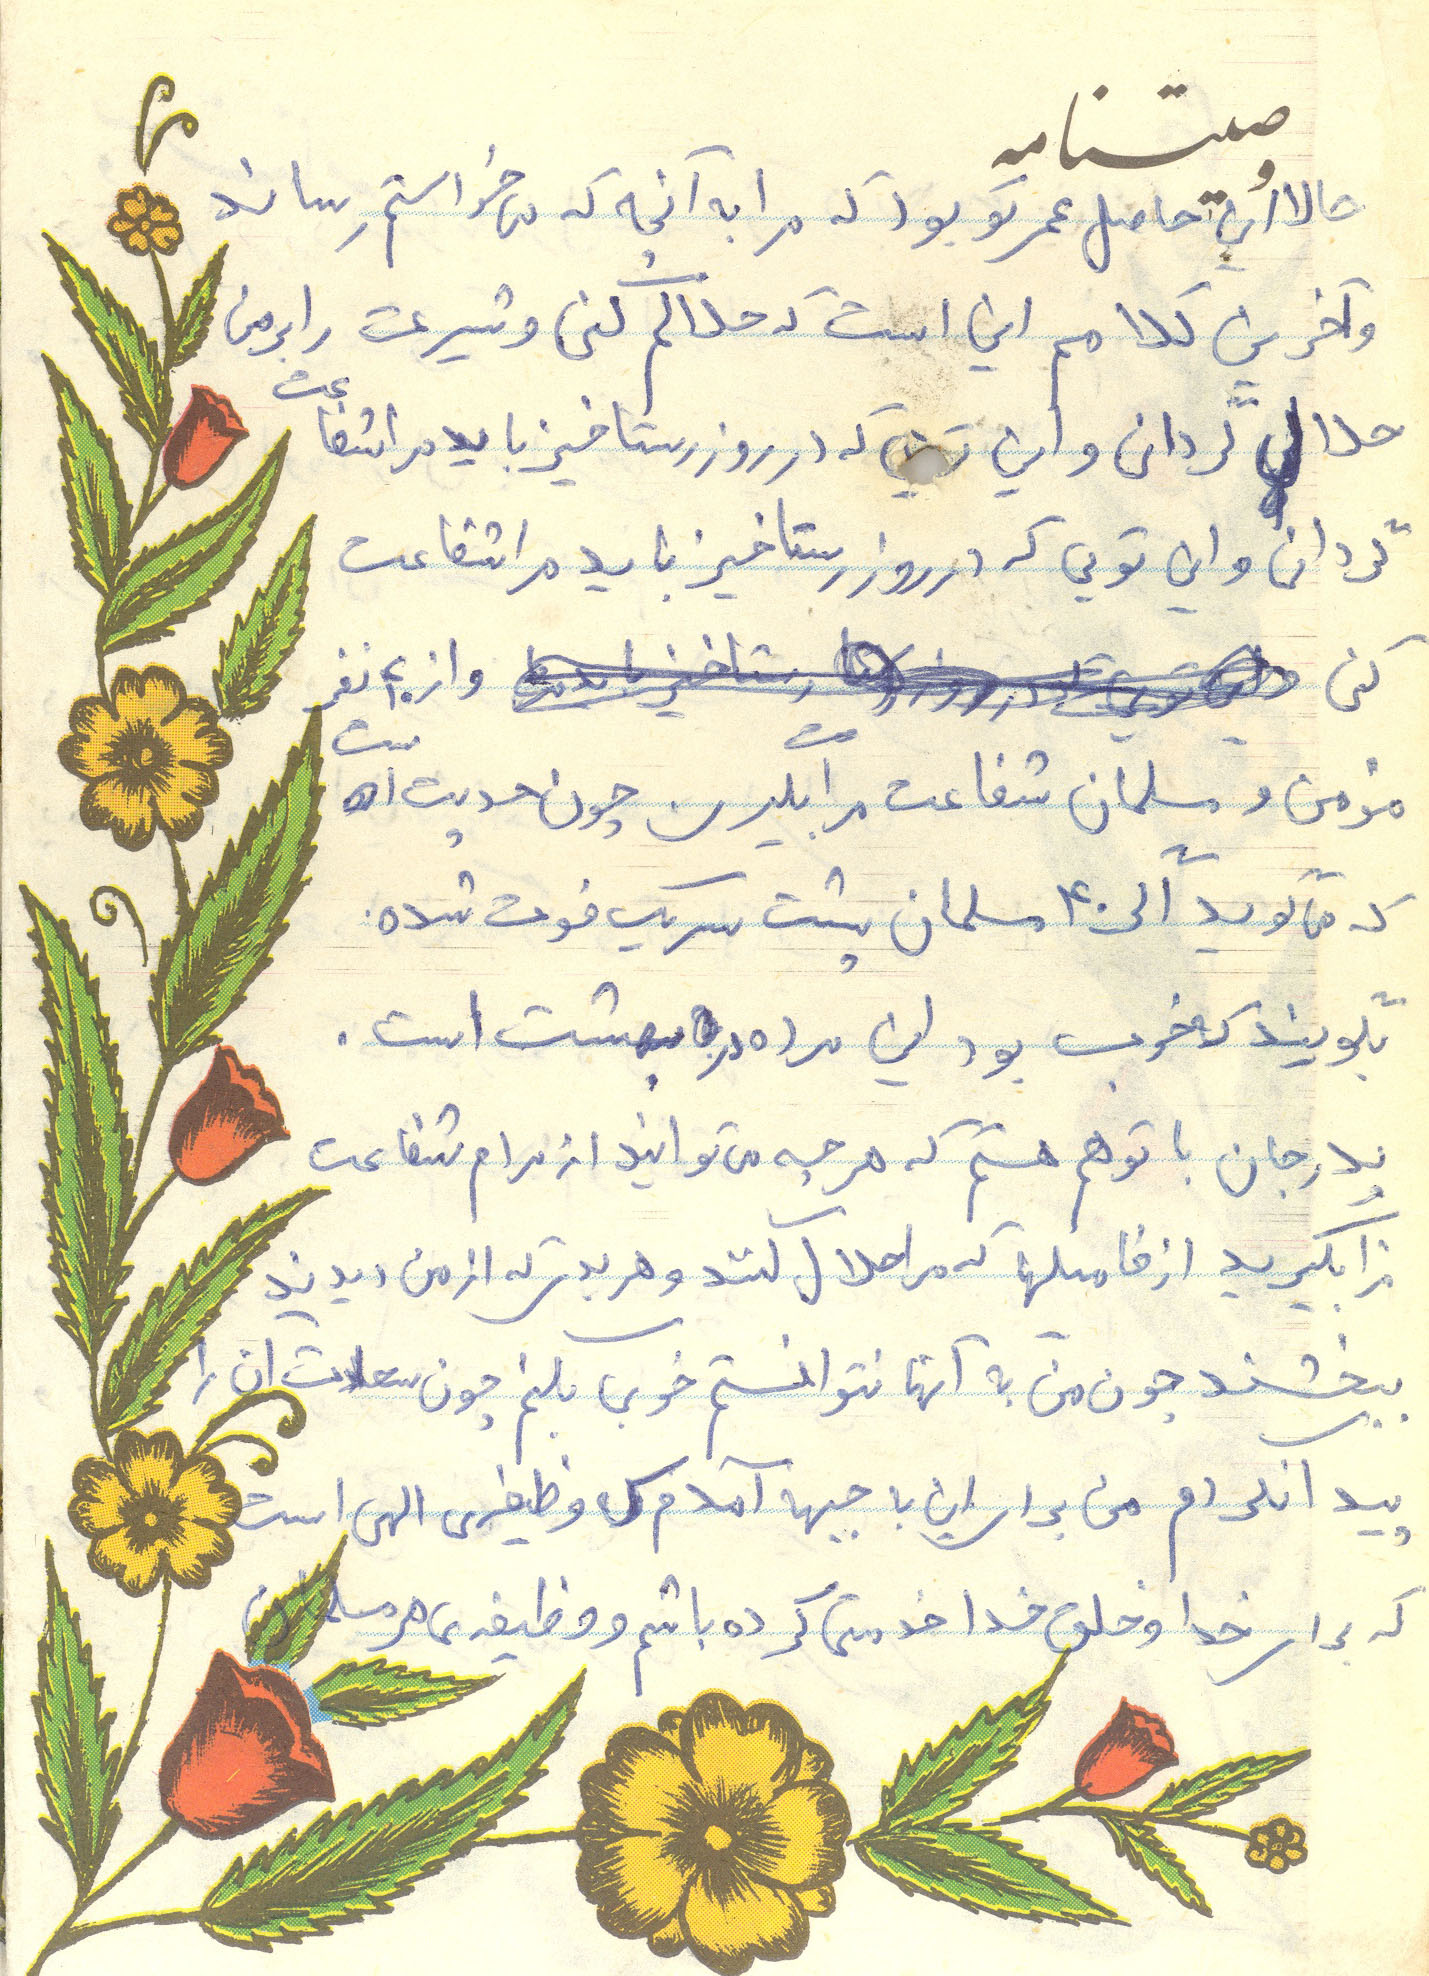 وصیتنامه
حالا این حاصل عمر تو بود که مرا به آنچه که می‌خواستم رساند
و آخرین کلامم این است که حلالم کنی و شیرت را بر من
حلال گردان و این تویی که در روز رستاخیز باید مرا شفاعت
گردان و این تویی که در روز رستاخیز باید مرا شفاعت
کنی و از ۴۰ نفر
مؤمن و مسلمان شفاعت مرا بگیری چون حدیث است
که می‌گوید اگر ۴۰ مسلمان پشت سر یک فوت شده
بگویند که خوب بود این مرده در بهشت است.
پدر جان با تو هم هستم که هر چه می‌توانید از مردم شفاعت
مرا بگیرید از فامیلها که مرا حلال کنند و هر بدی که از من دیدند
ببخشند چون من به آنها نتوانستم خوبی بکنم چون سعادت آن را
پیدا نکردم من برای این با جبهه آمدم که وظیفه‌ی الهی است
که برای خدا و خلق خدا خدمتی کرده باشم و وظیفه‌ی هر مسلمان